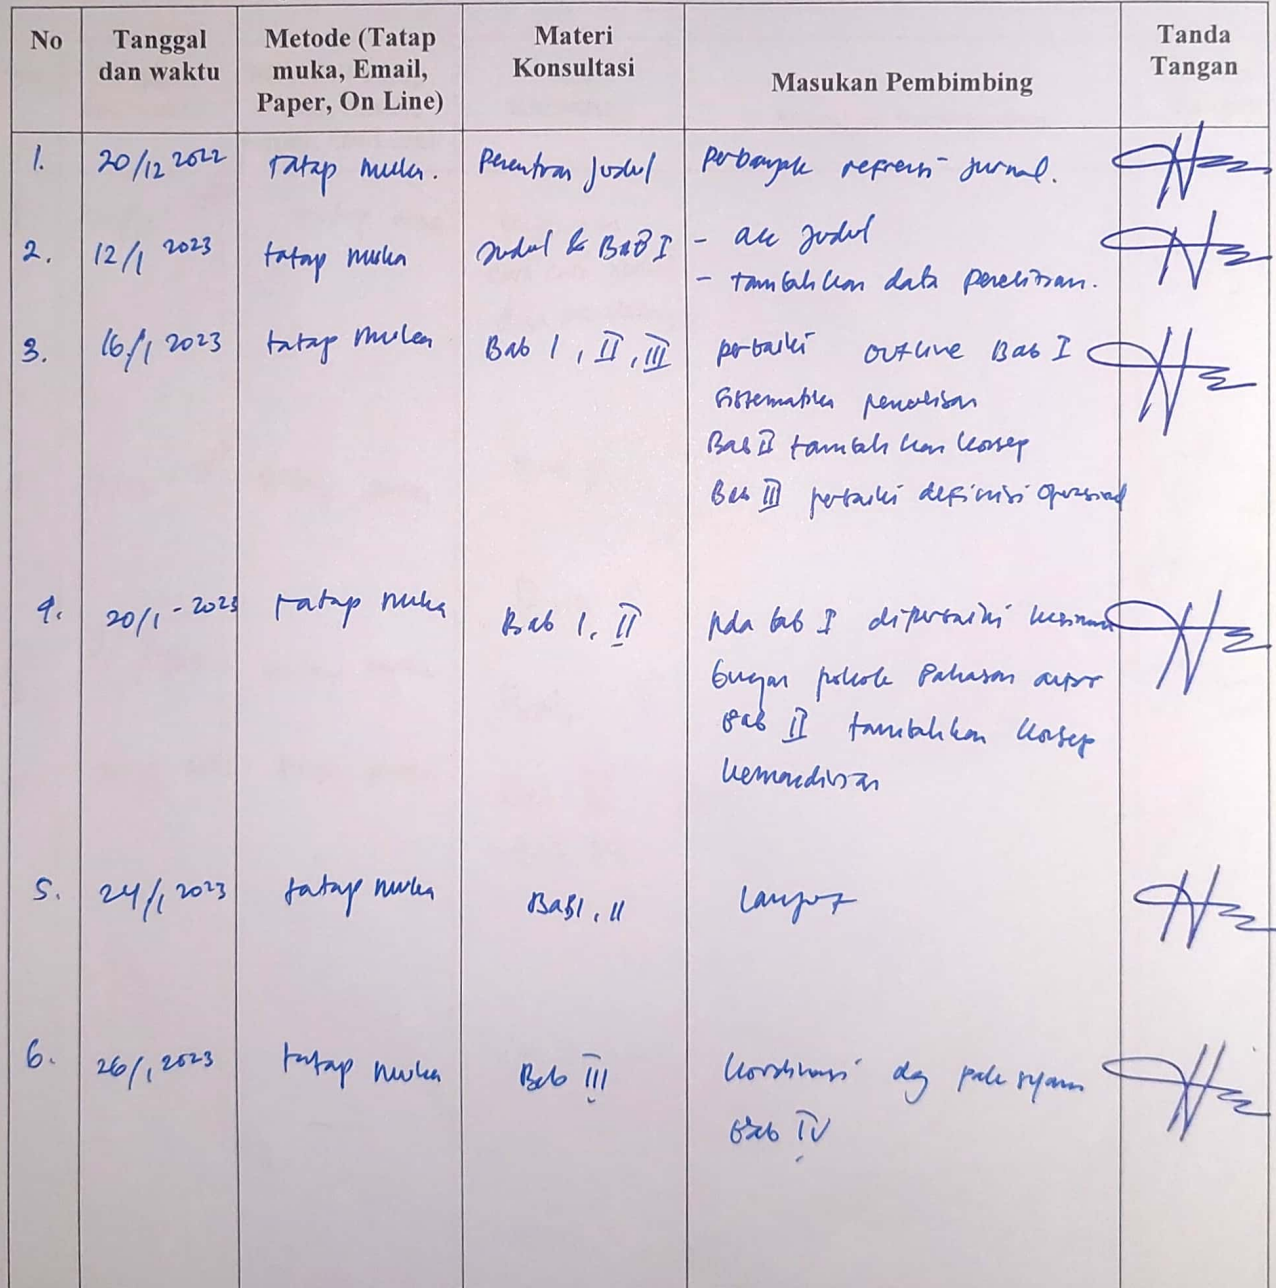 No
Tanggal
dan waktu
Metode (Tatap
muka, Email,
Paper, On Line)
Materi
Konsultasi
Masukan Pembimbing
Tanda
Tangan
1.
20/12 2022
tatap muka.
Penentuan judul
perbanyak refrensi jurnal.
2.
12/1 2023
tatap muka
Judul & BAB I
- acc judul
- tambahkan data penelitian.
3.
16/1 2023
tatap muka
Bab I, II, III
perbaiki outline Bab I
sistematika penulisan
Bab II tambahkan konsep
Bab III perbaiki definisi operasional
4.
20/1 - 2023
tatap muka
Bab I, II
pda bab I diperbaiki kesinam
bungan pokok bahasan antar
Bab II tambahkan konsep
kemandirian
5.
24/1 2023
tatap muka
Bab I, II
Lanjut
6.
26/1 2023
tatap muka
Bab III
kordinasi dg pak syam
bab IV